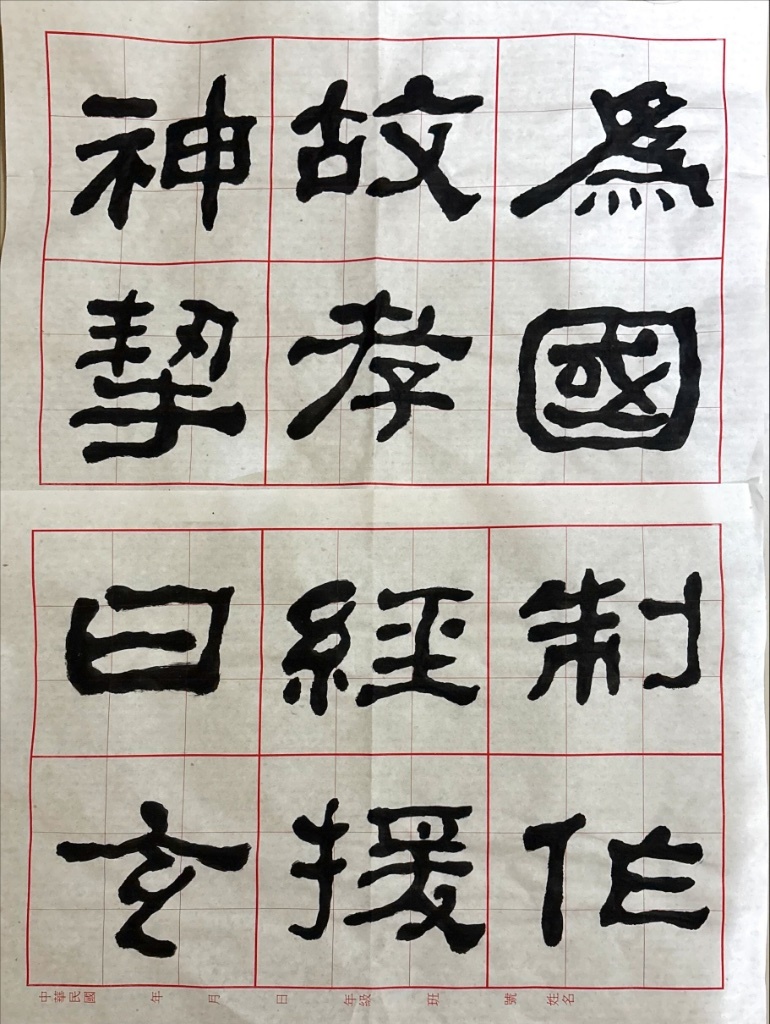 為國制作
故孝經援
神挈曰玄
中華民國 年 月 日 年級 班 號 姓名